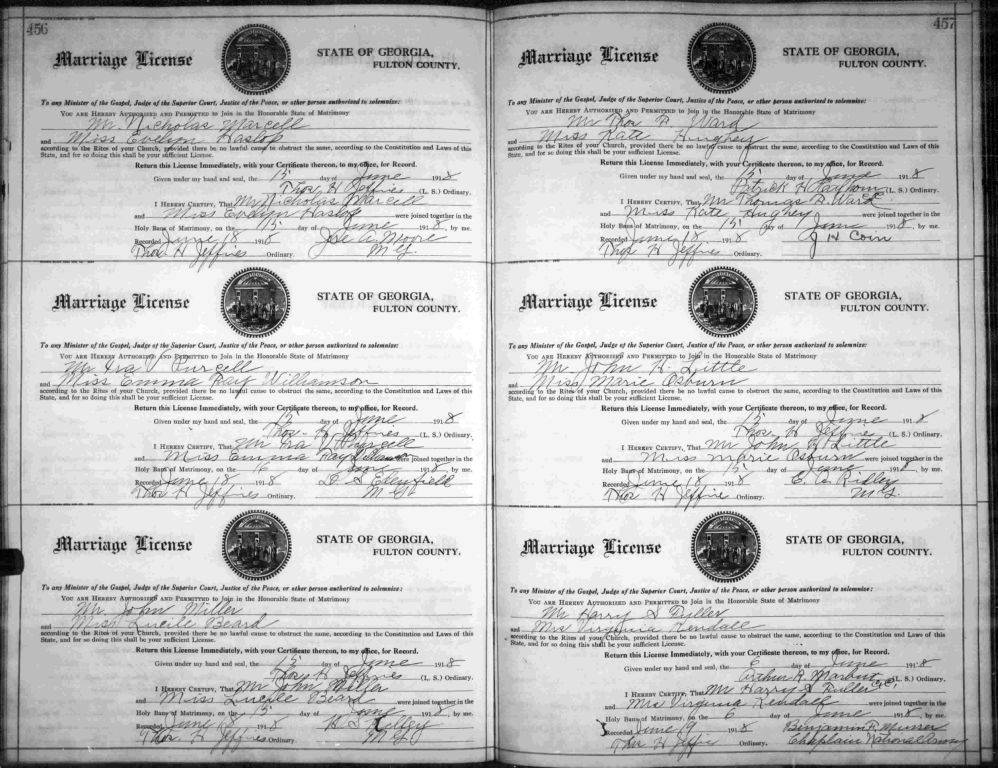 456
Marriage License
STATE OF GEORGIA,
FULTON COUNTY.
To any Minister of the Gospel, Judge of the Superior Court, Justice of the Peace, or other person authorized to solemnize:
YOU ARE HEREBY AUTHORIZED AND PERMITTED to Join in the Honorable State of Matrimony
Mr. Nicholas Marcell
and Miss Evelyn Haslop
according to the Rites of your Church, provided there be no lawful cause to obstruct the same, according to the Constitution and Laws of this
State, and for so doing this shall be your sufficient License.
Return this License Immediately, with your Certificate thereon, to my office, for Record.
Given under my hand and seal, the 15 day of June 1918
Thos. H Jeffries (L. S.) Ordinary.
I HEREBY CERTIFY, That Mr Nicholas Marcell
and Miss Evelyn Haslop were joined together in the
Holy Bans of Matrimony, on the 15 day of June 1918, by me.
Recorded June 18 1918 A. Moore
Thos H Jeffries Ordinary. M G.
Marriage License
STATE OF GEORGIA,
FULTON COUNTY.
To any Minister of the Gospel, Judge of the Superior Court, Justice of the Peace, or other person authorized to solemnize:
YOU ARE HEREBY AUTHORIZED AND PERMITTED to Join in the Honorable State of Matrimony
Mr Ira Purcell
and Miss Emma Ray Williamson
according to the Rites of your Church, provided there be no lawful cause to obstruct the same, according to the Constitution and Laws of this
State, and for so doing this shall be your sufficient License.
Return this License Immediately, with your Certificate thereon, to my office, for Record.
Given under my hand and seal, the 15 day of June 1918
Thos. H Jeffries (L. S.) Ordinary.
I HEREBY CERTIFY, That Mr Ira Purcell
and Miss Emma Ray were joined together in the
Holy Bans of Matrimony, on the 16 day of June 1918, by me.
Recorded June 18 1918 D. S.
Thos H Jeffries Ordinary. M G
Marriage License
STATE OF GEORGIA,
FULTON COUNTY.
To any Minister of the Gospel, Judge of the Superior Court, Justice of the Peace, or other person authorized to solemnize:
YOU ARE HEREBY AUTHORIZED AND PERMITTED to Join in the Honorable State of Matrimony
Mr. John Miller
and Miss Lucile Beard
according to the Rites of your Church, provided there be no lawful cause to obstruct the same, according to the Constitution and Laws of this
State, and for so doing this shall be your sufficient License.
Return this License Immediately, with your Certificate thereon, to my office, for Record.
Given under my hand and seal, the 15 day of June 1918
Thos H Jeffries (L. S.) Ordinary.
I HEREBY CERTIFY, That Mr John Miller
and Miss Lucile Beard were joined together in the
Holy Bans of Matrimony, on the 15 day of June 1918, by me.
Recorded June 18 1918
Thos H Jeffries Ordinary. M G
457
Marriage License
STATE OF GEORGIA,
FULTON COUNTY.
To any Minister of the Gospel, Judge of the Superior Court, Justice of the Peace, or other person authorized to solemnize:
YOU ARE HEREBY AUTHORIZED AND PERMITTED to Join in the Honorable State of Matrimony
Mr Thos A. Ward
and Miss Kate Hughey
according to the Rites of your Church, provided there be no lawful cause to obstruct the same, according to the Constitution and Laws of this
State, and for so doing this shall be your sufficient License.
Return this License Immediately, with your Certificate thereon, to my office, for Record.
Given under my hand and seal, the 15 day of June 1918
H (L. S.) Ordinary.
I HEREBY CERTIFY, That Mr Thomas A. Ward
and Miss Kate Hughey were joined together in the
Holy Bans of Matrimony, on the 15 day of June 1918, by me.
Recorded June 18 1918 J H Coin
Thos H Jeffries Ordinary.
Marriage License
STATE OF GEORGIA,
FULTON COUNTY.
To any Minister of the Gospel, Judge of the Superior Court, Justice of the Peace, or other person authorized to solemnize:
YOU ARE HEREBY AUTHORIZED AND PERMITTED to Join in the Honorable State of Matrimony
Mr. John H. Little
and Miss Marie Osburn
according to the Rites of your Church, provided there be no lawful cause to obstruct the same, according to the Constitution and Laws of this
State, and for so doing this shall be your sufficient License.
Return this License Immediately, with your Certificate thereon, to my office, for Record.
Given under my hand and seal, the 15 day of June 1918
Thos. H Jeffries (L. S.) Ordinary.
I HEREBY CERTIFY, That Mr John H Little
and Miss Marie Osburn were joined together in the
Holy Bans of Matrimony, on the 15 day of June 1918, by me.
Recorded June 18 1918 C. C. Ridley
Thos H Jeffrie Ordinary. M G.
Marriage License
STATE OF GEORGIA,
FULTON COUNTY.
To any Minister of the Gospel, Judge of the Superior Court, Justice of the Peace, or other person authorized to solemnize:
YOU ARE HEREBY AUTHORIZED AND PERMITTED to Join in the Honorable State of Matrimony
Mr Harry S Fuller
and Mrs Virginia Kendall
according to the Rites of your Church, provided there be no lawful cause to obstruct the same, according to the Constitution and Laws of this
State, and for so doing this shall be your sufficient License.
Return this License Immediately, with your Certificate thereon, to my office, for Record.
Given under my hand and seal, the 6 day of June 1918
Arthur R. Marbut (L. S.) Ordinary.
I HEREBY CERTIFY, That Mr Harry S Fuller
and Mrs Virginia Kendall were joined together in the
Holy Bans of Matrimony, on the 6 day of June 1918, by me.
Recorded June 19 1918 Benjamin F. Musser
Thos H Jeffrie Ordinary. Chaplain National Army